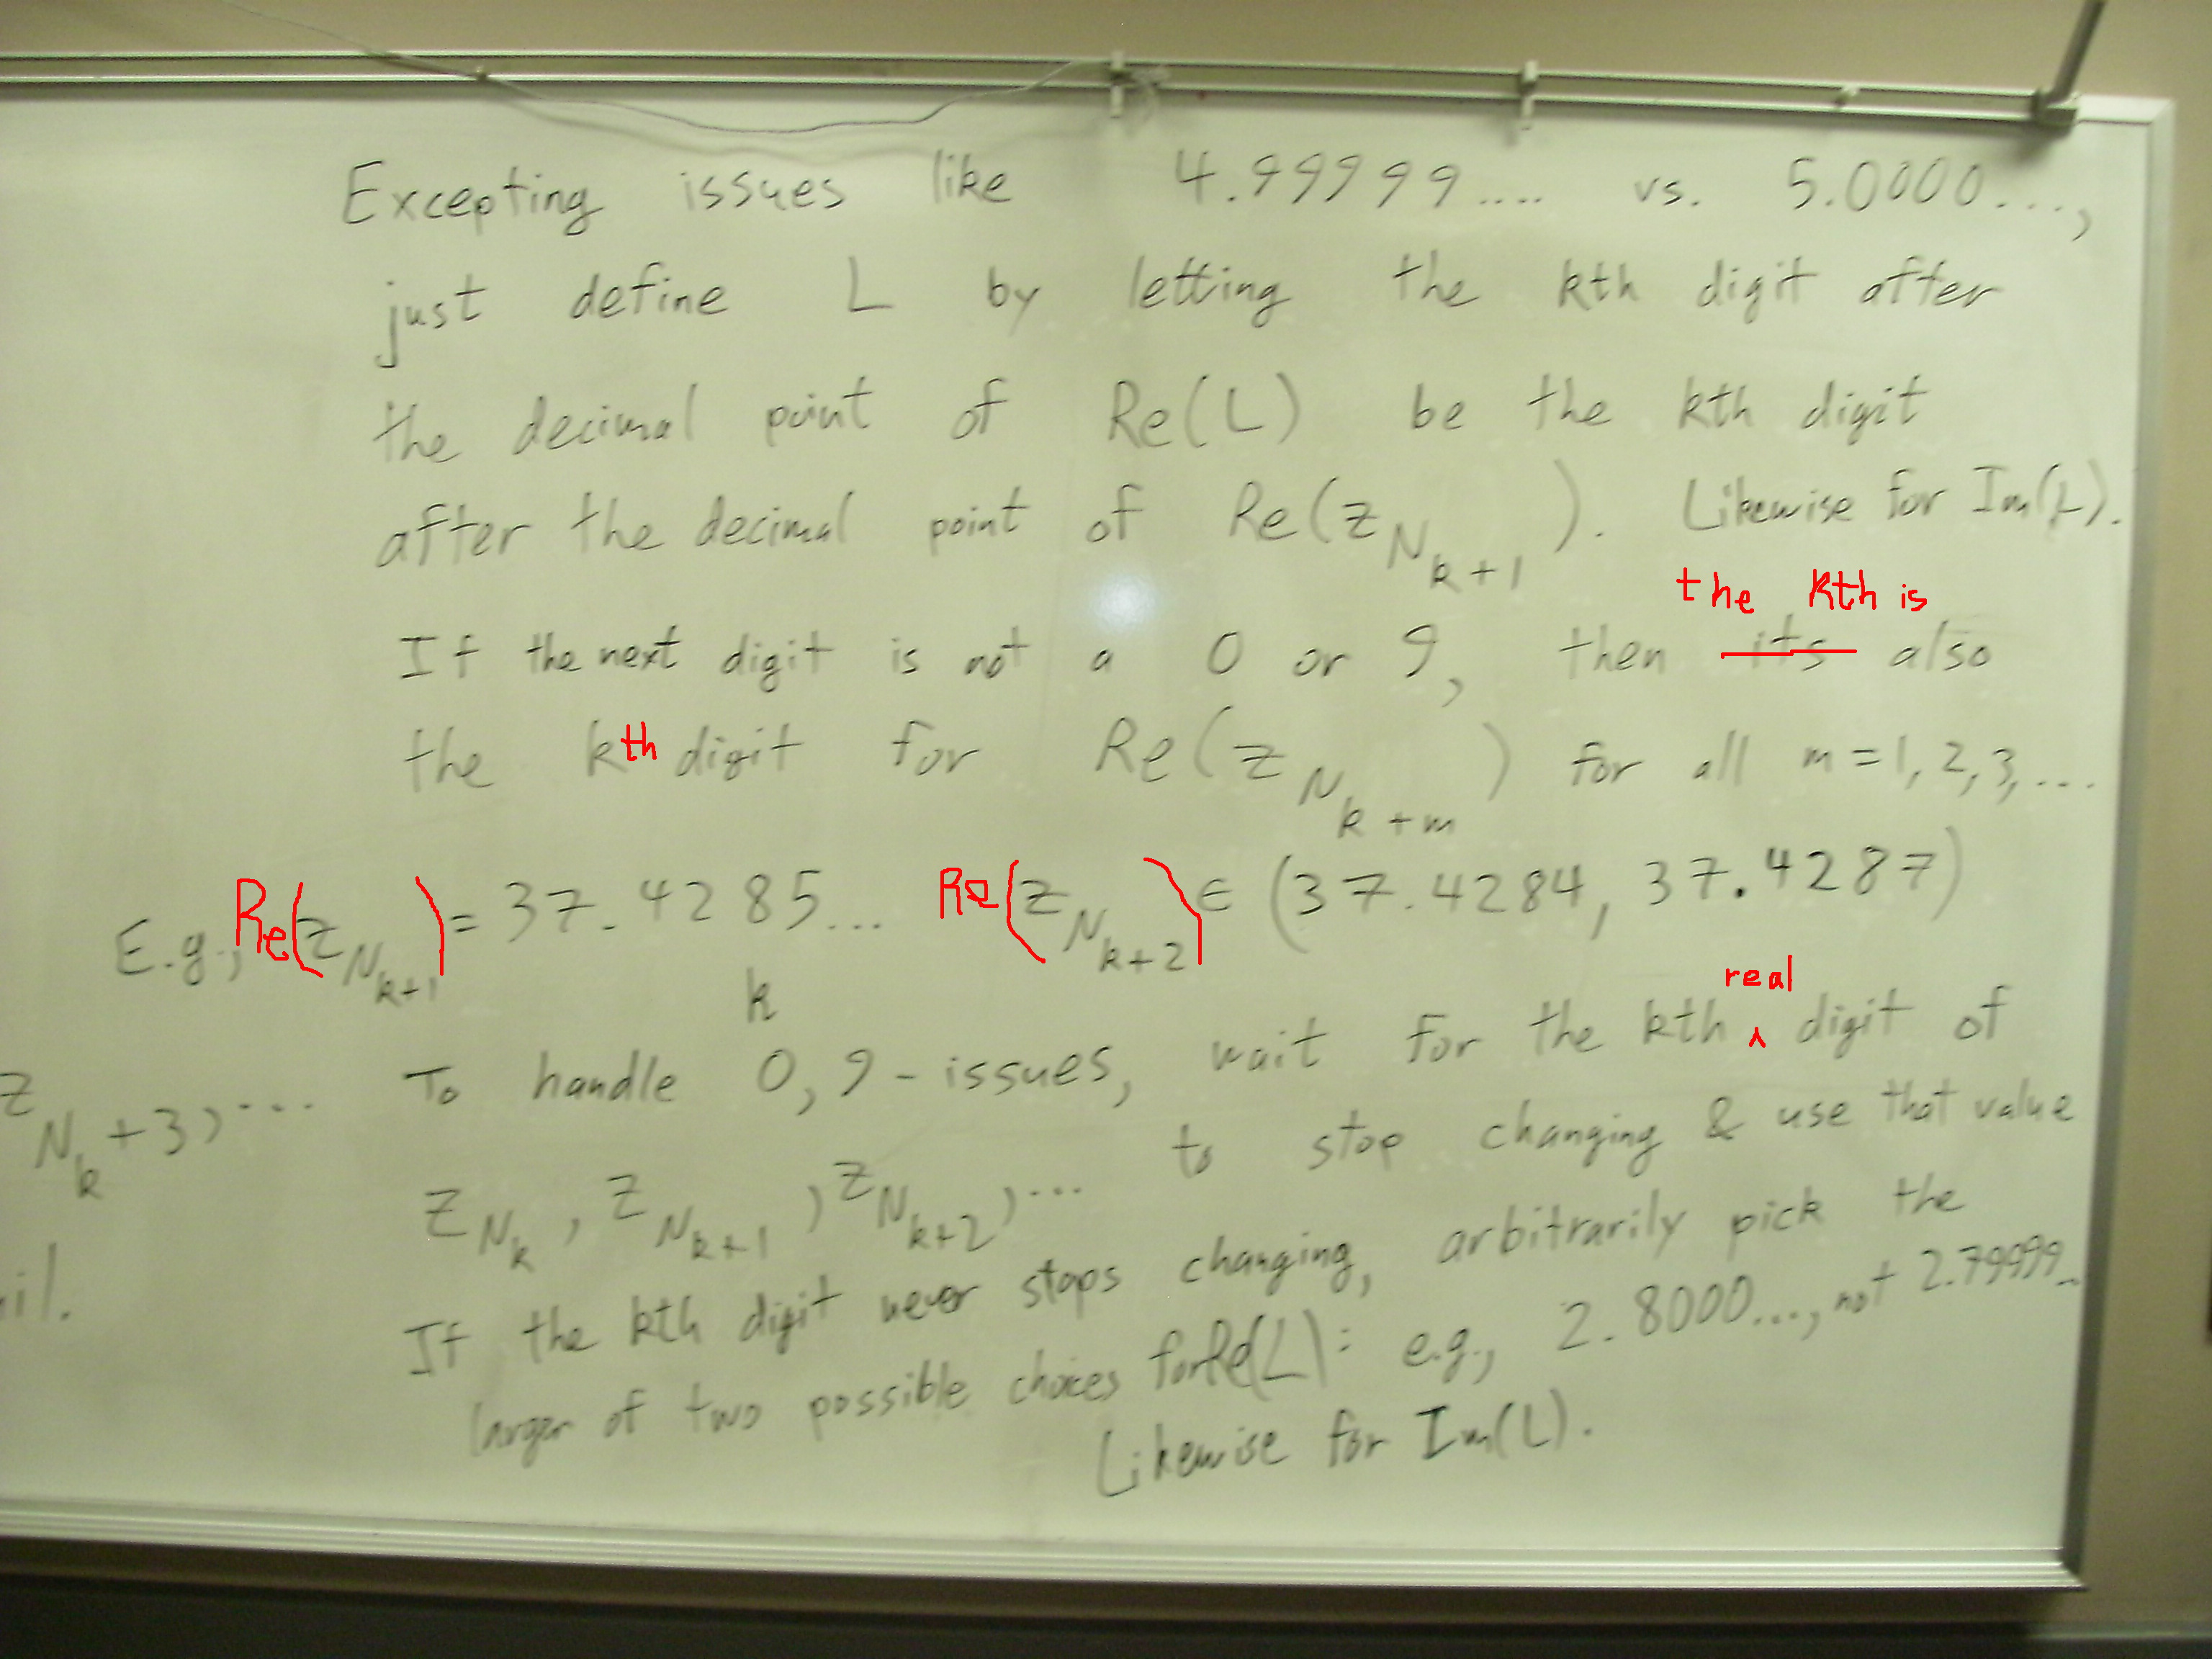 Excepting issues like 4.99999.... vs. 5.0000...,
just define L by letting the kth digit after
the decimal point of Re(L) be the kth digit
after the decimal point of Re(z_{N_{k+1}}). Likewise for Im(L).
the kth is
If the next digit is not a 0 or 9, then its also
the kth digit for Re(z_{N_{k+m}}) for all m=1,2,3,...
E.g., Re(z_{N_{k+1}}) = 37.4285... Re(z_{N_{k+2}}) ∈ (37.4284, 37.4287)
k
real
To handle 0,9-issues, wait for the kth ^ digit of
z_{N_k+3},...
z_{N_k}, z_{N_{k+1}}, z_{N_{k+2}},... to stop changing & use that value
If the kth digit never stops changing, arbitrarily pick the
larger of two possible choices for Re(L): e.g., 2.8000..., not 2.79999...
Likewise for Im(L).